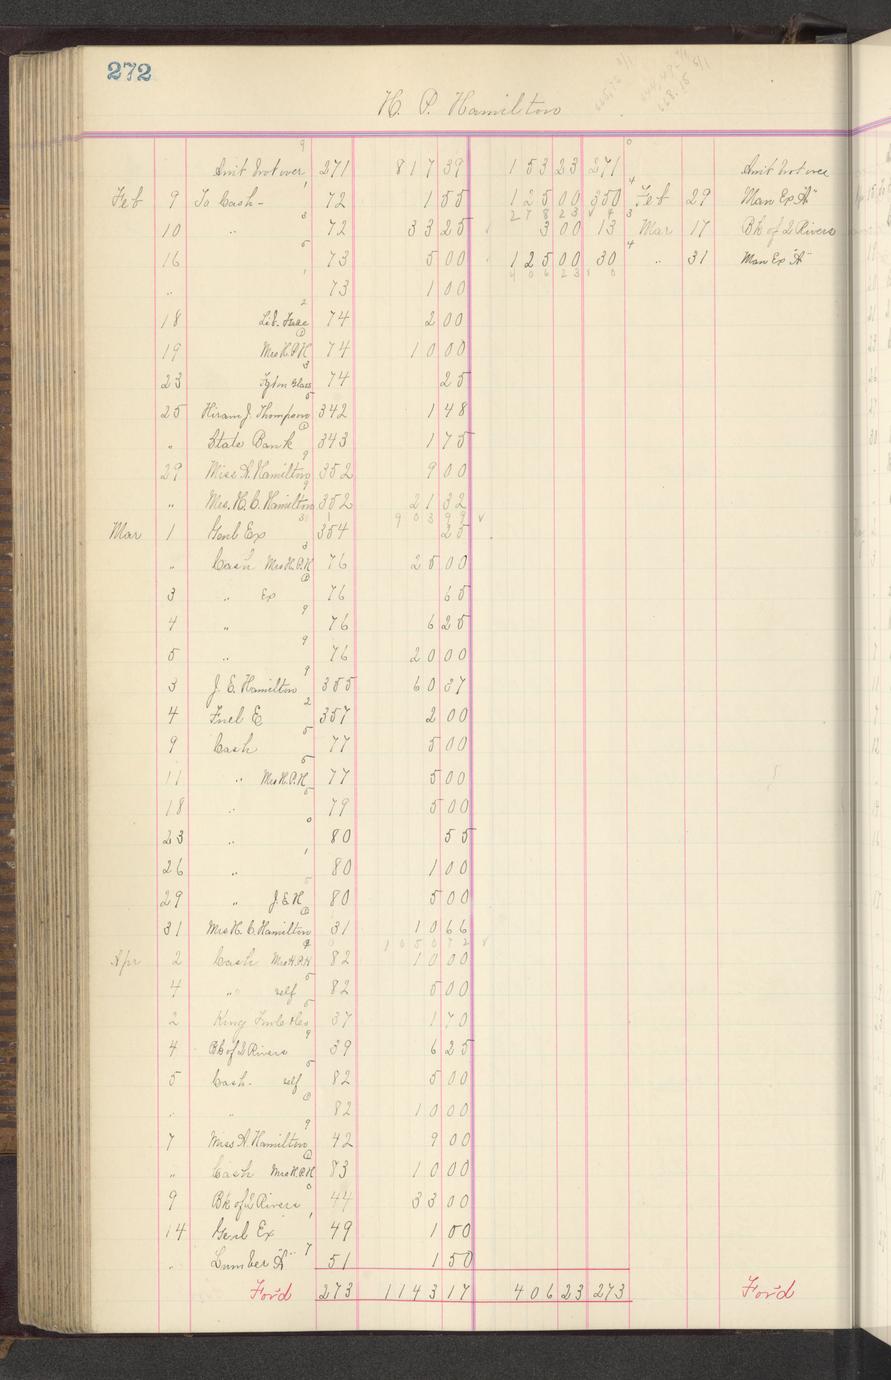 272
H. P. Hamilton
Amt brot over 271 817 39 153 23 271 Amt brot over
Feb 9 To Cash - 72 1 55 125 00 350 Feb 29 Man Ex "A"
278 23
10 " 72 33 25 3 00 13 Mar 17 Bk of 2 Rivers
16 73 5 00 125 00 30 " 31 Man Ex "A"
406 23
" 73 1 00
18 Lit. 74 2 00
19 Mrs H.P.H 74 10 00
23 Glass 74 25
25 Hiram J. Thompson 342 1 48
" State Bank 343 1 75
29 Miss A. Hamilton 352 9 00
" Mrs. H. C. Hamilton 352 21 32
903 99
Mar 1 Genl Ex 354 25
" Cash Mrs H.P.H 76 25 00
3 " Ex 76 65
4 " 76 6 25
5 " 76 20 00
3 J. E. Hamilton 355 60 37
4 Fuel E 357 2 00
9 Cash 77 5 00
11 " Mrs H.P.H 77 5 00
18 " 79 5 00
23 " 80 55
26 " 80 1 00
29 " J E H 80 5 00
31 Mrs H. C. Hamilton 31 10 66
1050 72
Apr 2 Cash Mrs H.P.H 82 10 00
4 " self 82 5 00
2 King 37 1 70
4 Bk of 2 Rivers 39 6 25
5 Cash - self 82 5 00
" " 82 10 00
7 Miss A. Hamilton 42 9 00
" Cash Mrs H.P.H 83 10 00
9 Bk of 2 Rivers 44 33 00
14 Genl Ex 49 1 00
" Lumber "A" 51 1 50
For'd 273 1143 17 406 23 273 For'd